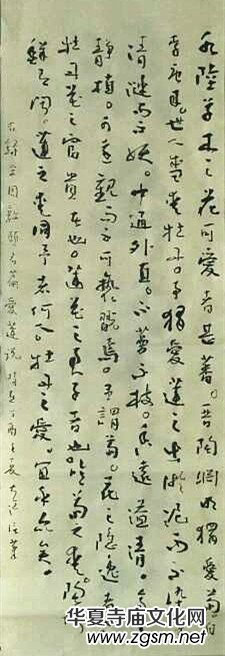 水陸草木之花可愛者甚蕃。晋陶淵明獨愛菊自
李唐来。世人盛愛牡丹。予獨愛蓮之出淤泥而不染
清漣而不妖。中通外直。不蔓不枝。香遠益清。亭
静植。可遠觀而不可褻翫焉。予謂菊。花之隐逸者
牡丹花之富貴者也。蓮花之君子者也。噫菊之愛。陶
鮮有聞。蓮之愛同予者何人。牡丹之愛。宜乎衆矣。
愛蓮說
华夏寺庙文化网
www.zgsm.net